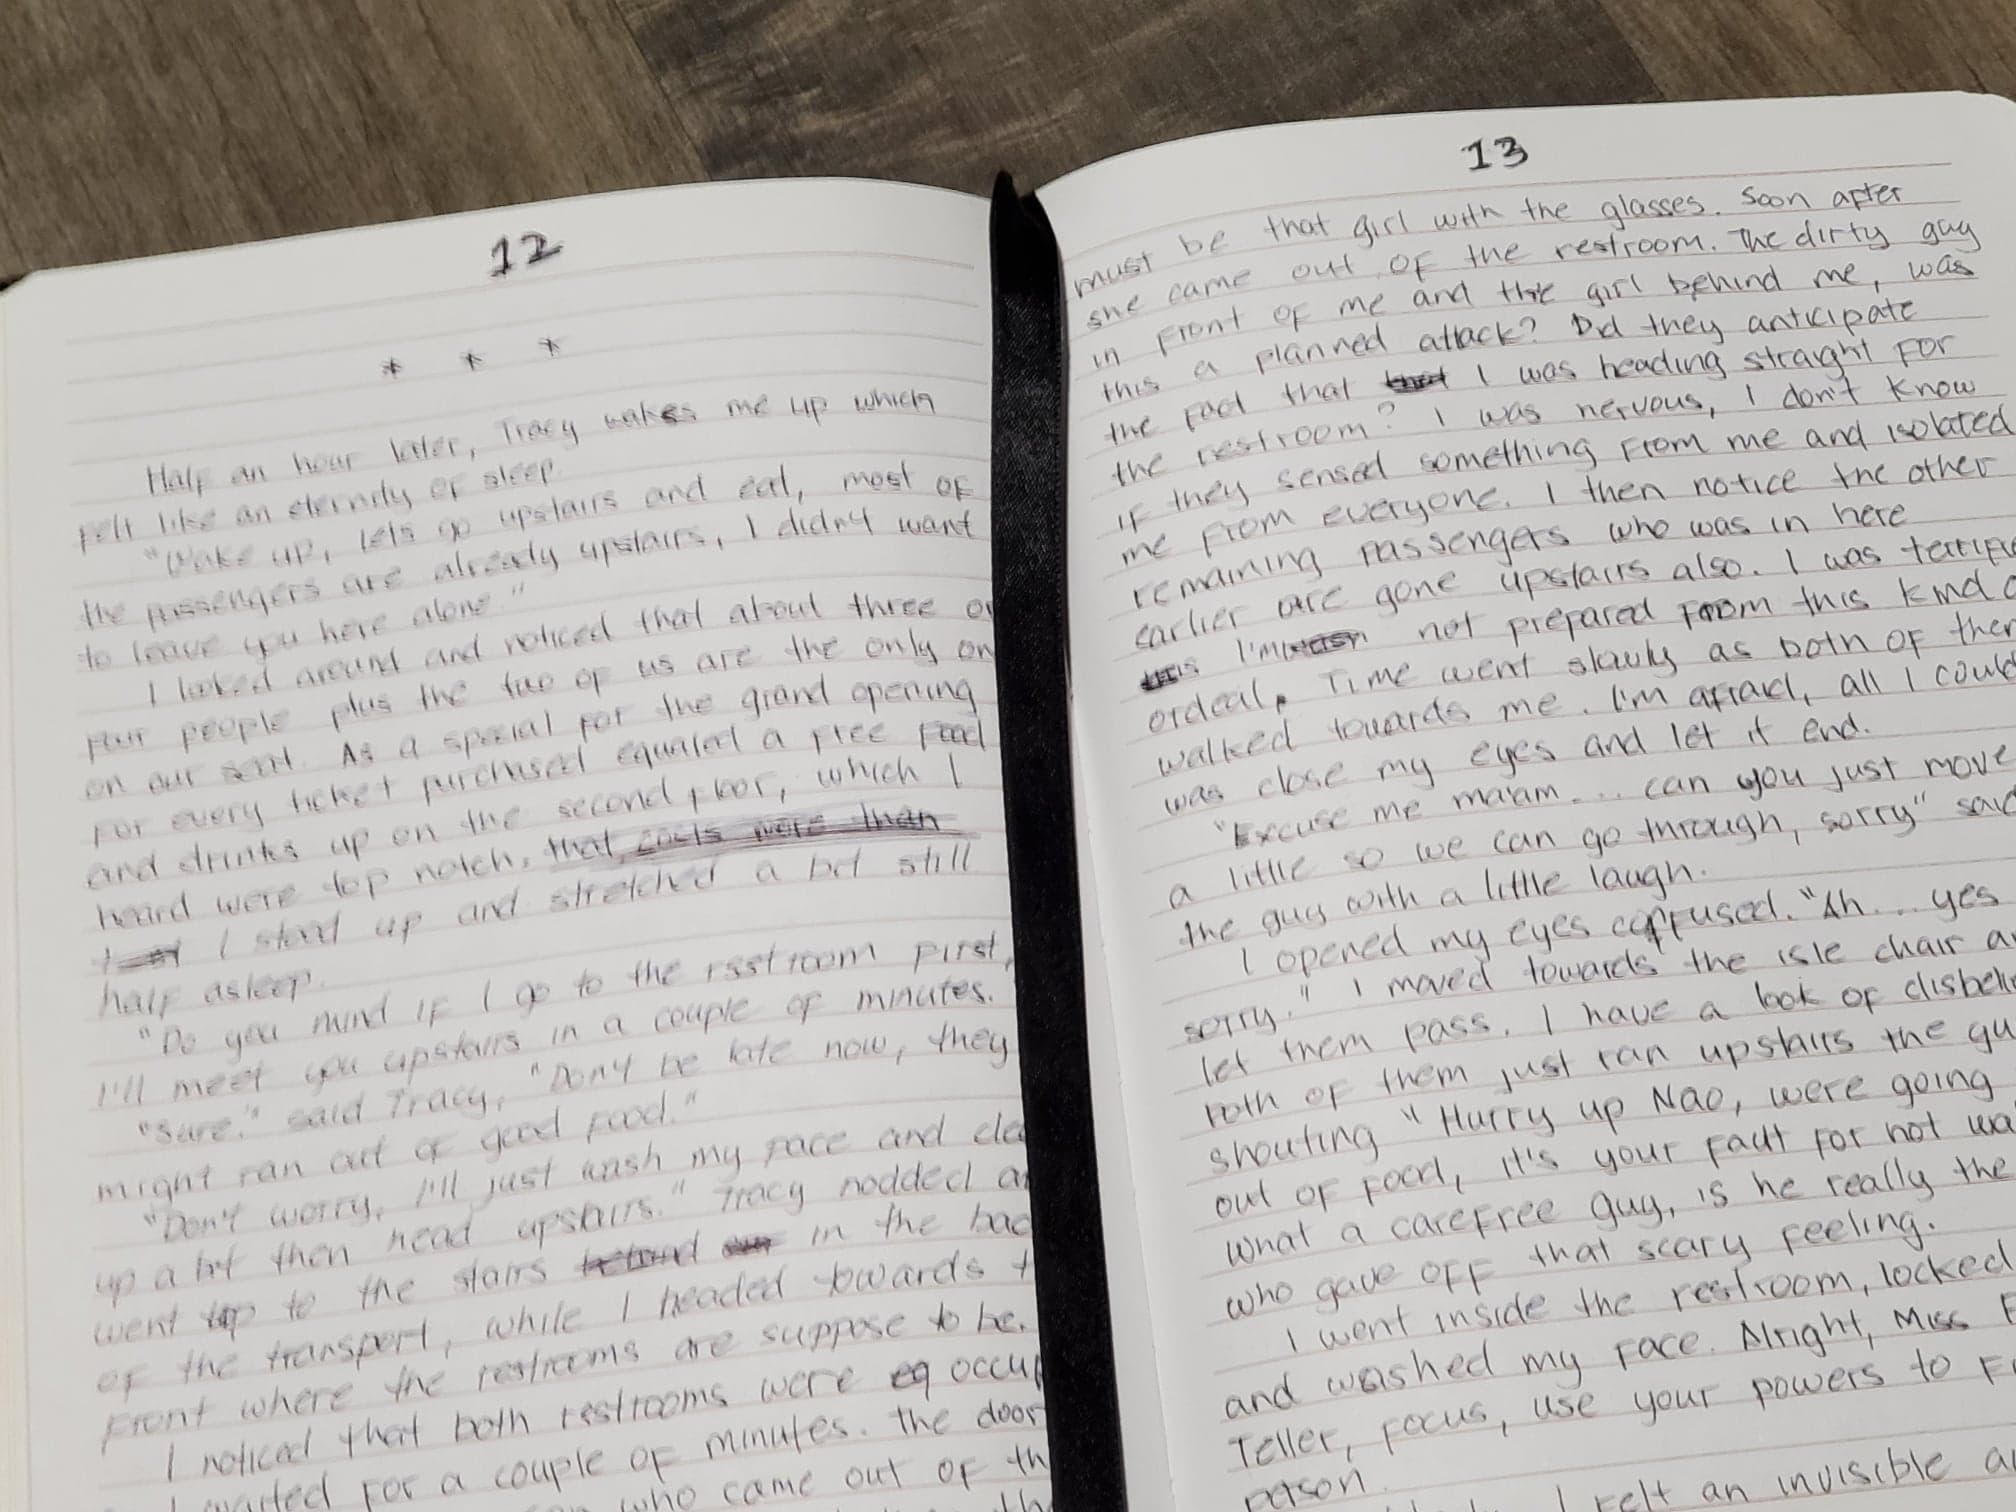 12
* * *
Half an hour later, Tracy wakes me up which
felt like an eternity of sleep.
"Wake up, lets go upstairs and eat, most of
the passengers are already upstairs, I didn't want
to leave you here alone."
I looked around and noticed that about three or
four people plus the two of us are the only on
on our seat. As a special for the grand opening
for every ticket purchased equaled a free food
and drinks up on the second floor, which I
heard were top notch. that costs were than
I stood up and stretched a bit still
half asleep.
"Do you mind if I go to the restroom first,
I'll meet you upstairs in a couple of minutes.
"Sure." said Tracy, "Don't be late now, they
might ran out of good food."
"Don't worry, I'll just wash my face and clea
up a bit then head upstairs." Tracy nodded a
went to the stairs behind in the bac
of the transport, while I headed towards t
front where the restrooms are suppose to be.
I noticed that both restrooms were occup
I waited for a couple of minutes. the door
who came out of th
13
must be that girl with the glasses. Soon after
she came out of the restroom. The dirty guy
in front of me and the girl behind me, was
this a planned attack? Did they anticipate
the fact that that I was heading straight for
the restroom? I was nervous, I don't know
if they sensed something from me and isolated
me from everyone. I then notice the other
remaining passengers who was in here
earlier are gone upstairs also. I was terrifie
this I'm not prepared from this kind o
ordeal. Time went slowly as both of them
walked towards me. I'm afraid, all I could
was close my eyes and let it end.
"Excuse me ma'am... can you just move
a little so we can go through, sorry" said
the guy with a little laugh.
I opened my eyes confused. "Ah... yes
sorry." I moved towards the isle chair a
let them pass. I have a look of disbelie
both of them just ran upstairs the gu
shouting "Hurry up Nao, were going
out of food, it's your fault for not wa
what a carefree guy, is he really the
who gave off that scary feeling.
I went inside the restroom, locked
and washed my face. Alright, Miss F
Teller, focus, use your powers to f
person.
I felt an invisible a